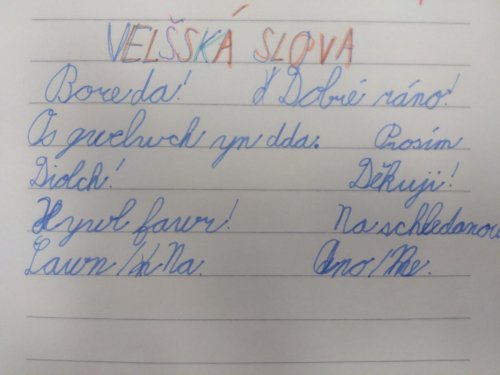 VELŠSKÁ SLOVA
Bore da! Dobré ráno!
Os gwelwch yn dda. Prosím
Diolch! Děkuji!
Hywl fawr! Na schledanou
Iawn/Na. Ano/Ne.